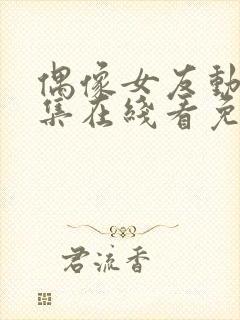 偶像女友動
集在綫看免
君流香